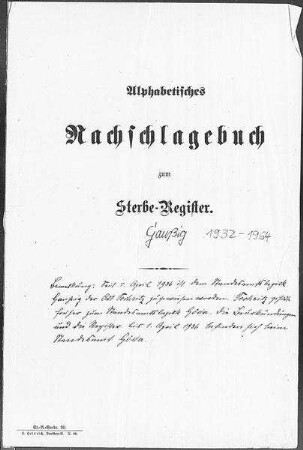 Alphabetisches
Nachschlagebuch
zum
Sterbe-Register.
Gaußig 1932-1964
Bemerkung: Seit 1. April 1936 ist dem Standesamtsbezirk
Gaußig der Ort zugewiesen worden. gehörte
früher zum Standesamtsbezirk Göda. Die Beurkundungen
und die Register bis 1. April 1936 befinden sich beim
Standesamt Göda.